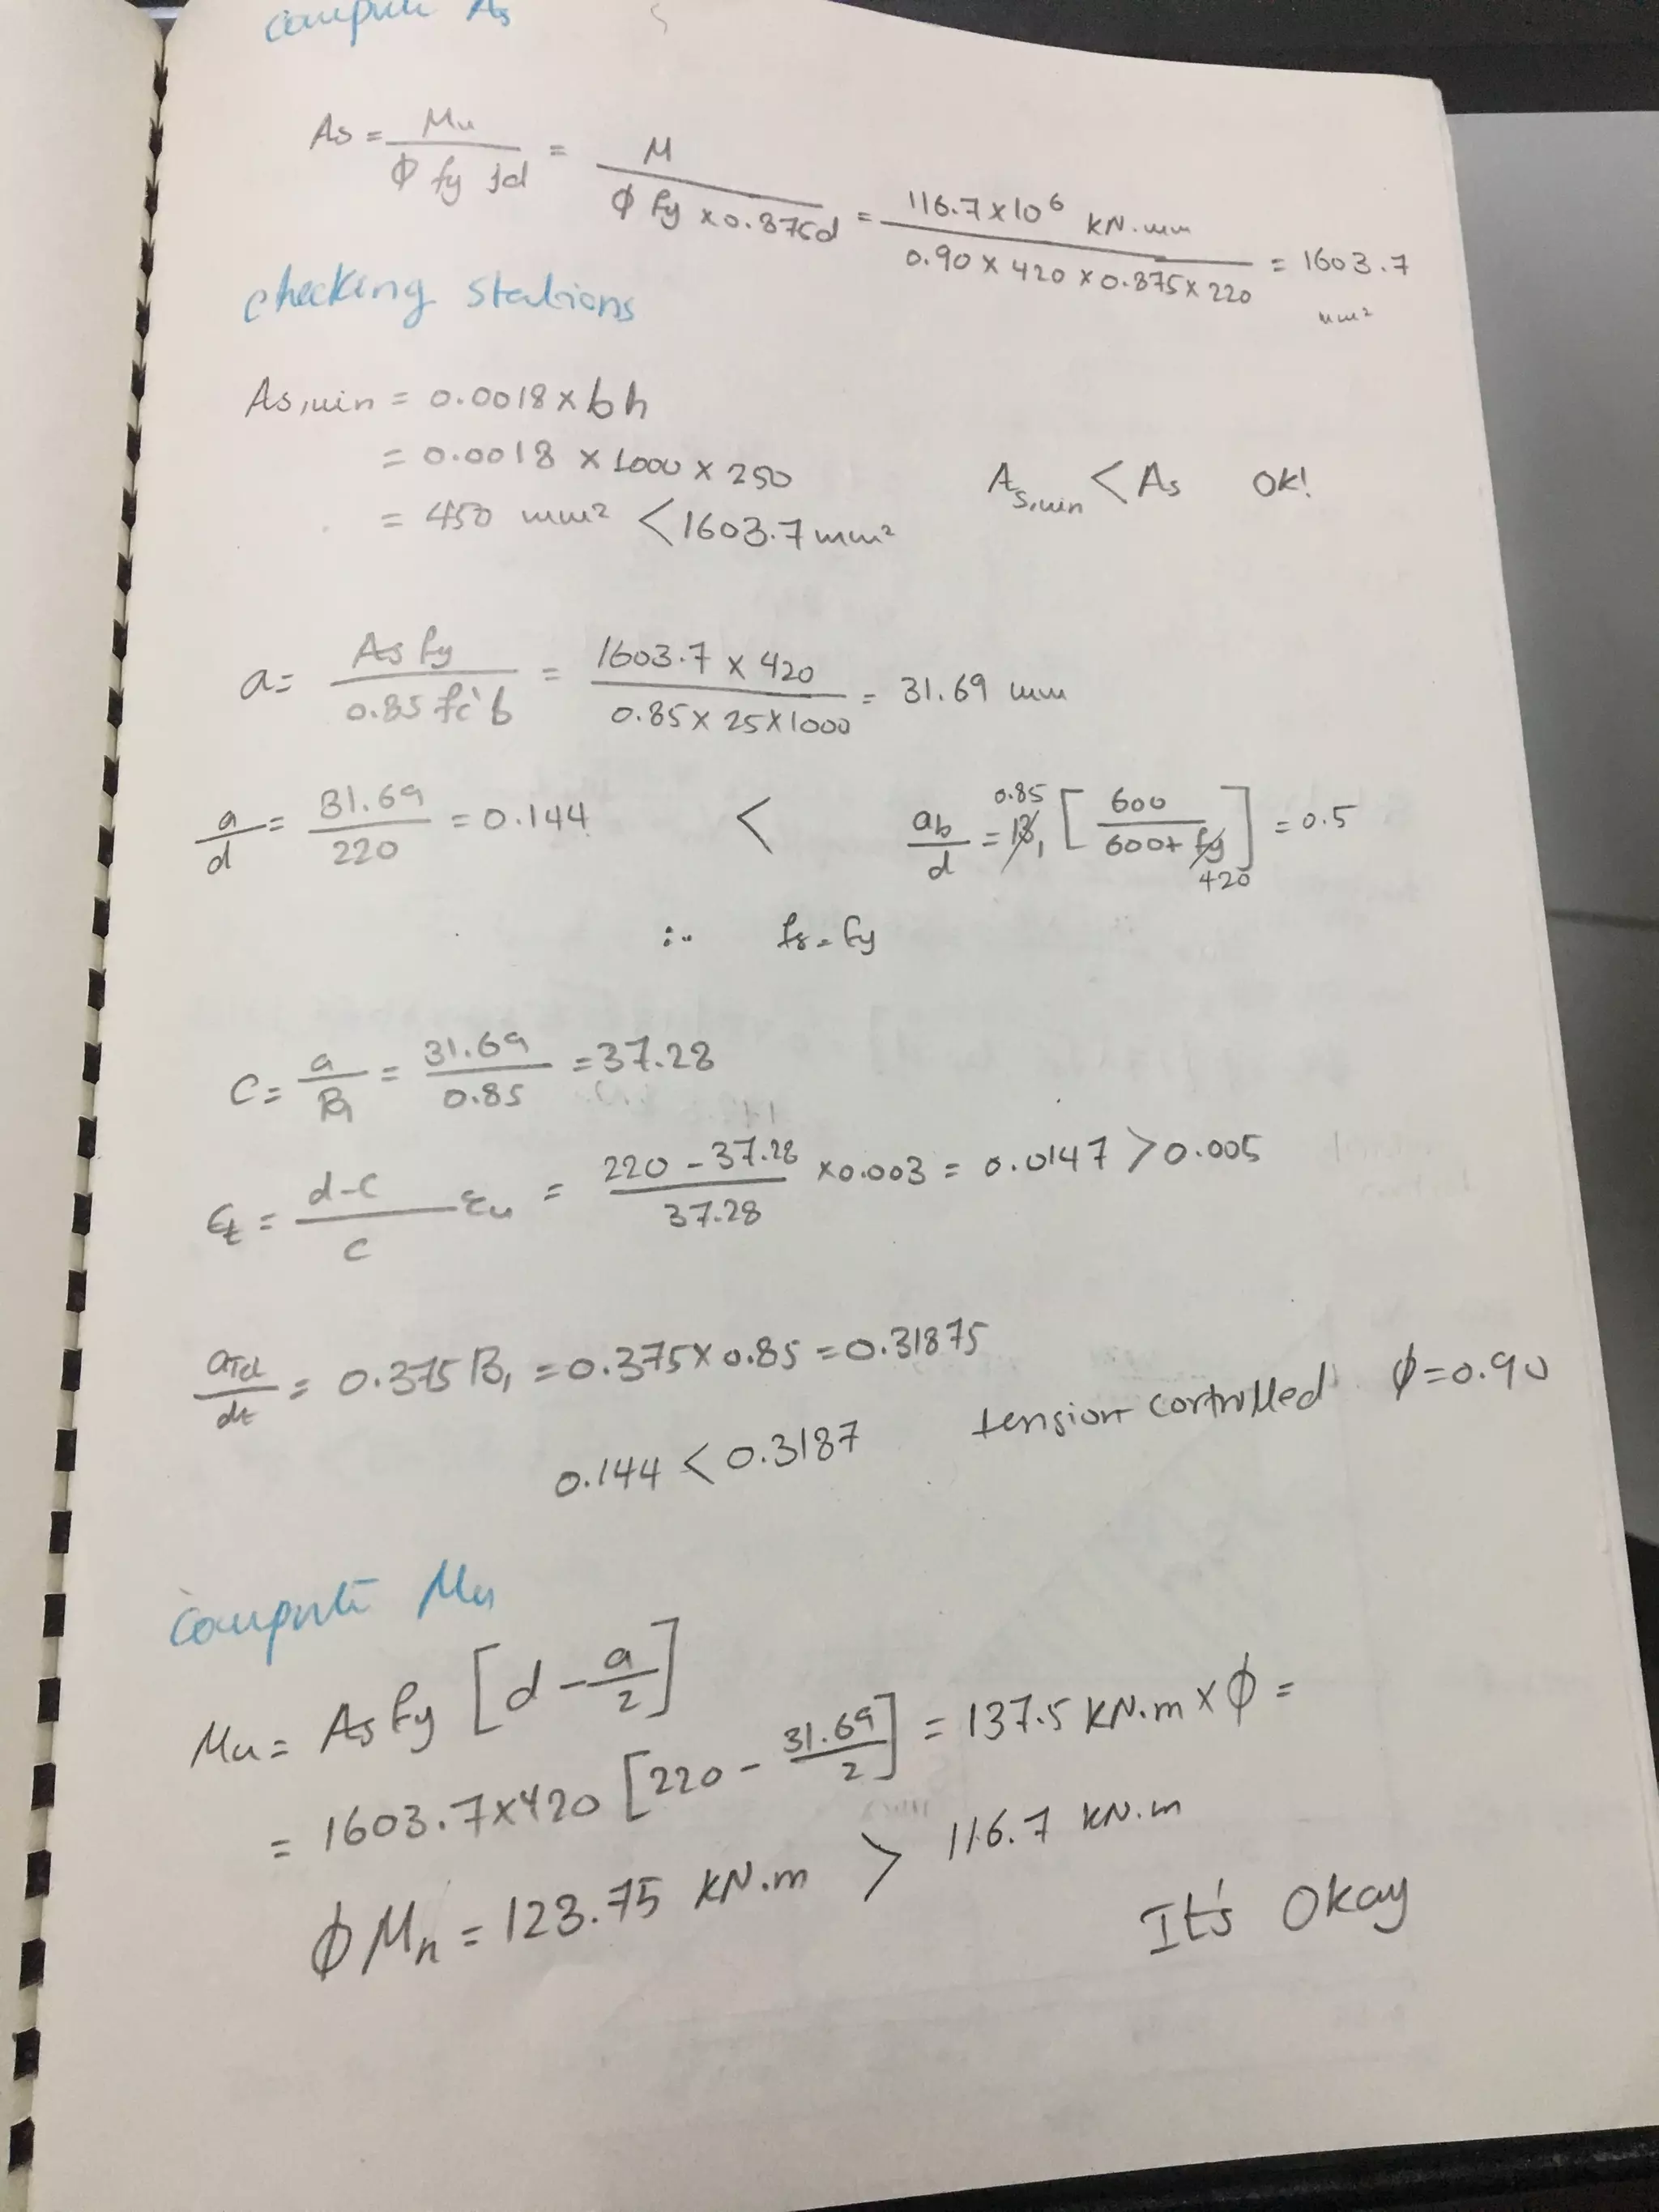 compute As
As = Mu / ϕ fy jd = M / ϕ fy x 0.875d = 116.7 x 10⁶ kN.mm / 0.90 x 420 x 0.875 x 220 = 1603.7 mm²
checking stations
As,min = 0.0018 x bh
= 0.0018 x 1000 x 250
= 450 mm² < 1603.7 mm² As,min < As OK!
a = As fy / 0.85 fc' b = 1603.7 x 420 / 0.85 x 25 x 1000 = 31.69 mm
a/d = 31.69 / 220 = 0.144 < ab/d = β₁ 0.85 [600 / 600 + fy 420] = 0.5
∴ fs = fy
C = a/β₁ = 31.69 / 0.85 = 37.28
εt = d-c / c εu = 220 - 37.28 / 37.28 x 0.003 = 0.0147 > 0.005
aTcl/dt = 0.375 β₁ = 0.375 x 0.85 = 0.31875
0.144 < 0.3187 tension controlled ϕ = 0.90
compute Mn
Mn = As fy [d - a/2]
= 1603.7 x 420 [220 - 31.69/2] = 137.5 kN.m x ϕ =
ϕ Mn = 123.75 kN.m > 116.7 kN.m
It's Okay